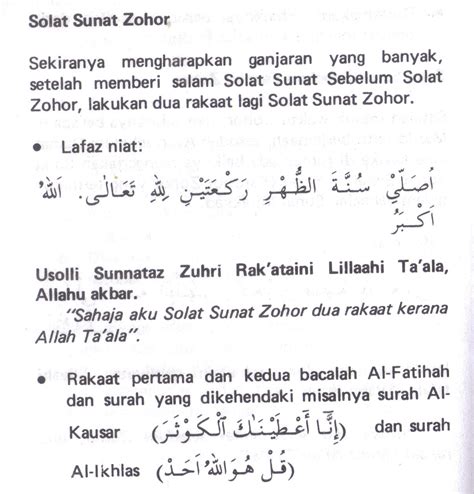 Solat Sunat Zohor
Sekiranya mengharapkan ganjaran yang banyak,
setelah memberi salam Solat Sunat Sebelum Solat
Zohor, lakukan dua rakaat lagi Solat Sunat Zohor.
● Lafaz niat:
اُصَلِّيْ سُنَّةَ الظُّهْرِ رَكْعَتَيْنِ لِلّٰهِ تَعَالٰى. اَللّٰهُ
اَكْبَرُ
Usolli Sunnataz Zuhri Rak'ataini Lillaahi Ta'ala,
Allahu akbar.
"Sahaja aku Solat Sunat Zohor dua rakaat kerana
Allah Ta'ala".
● Rakaat pertama dan kedua bacalah Al-Fatihah
dan surah yang dikehendaki misalnya surah Al-
Kausar (إِنَّا أَعْطَيْنَٰكَ ٱلْكَوْثَرَ) dan surah
Al-Ikhlas (قُلْ هُوَ اللّٰهُ اَحَدٌ)